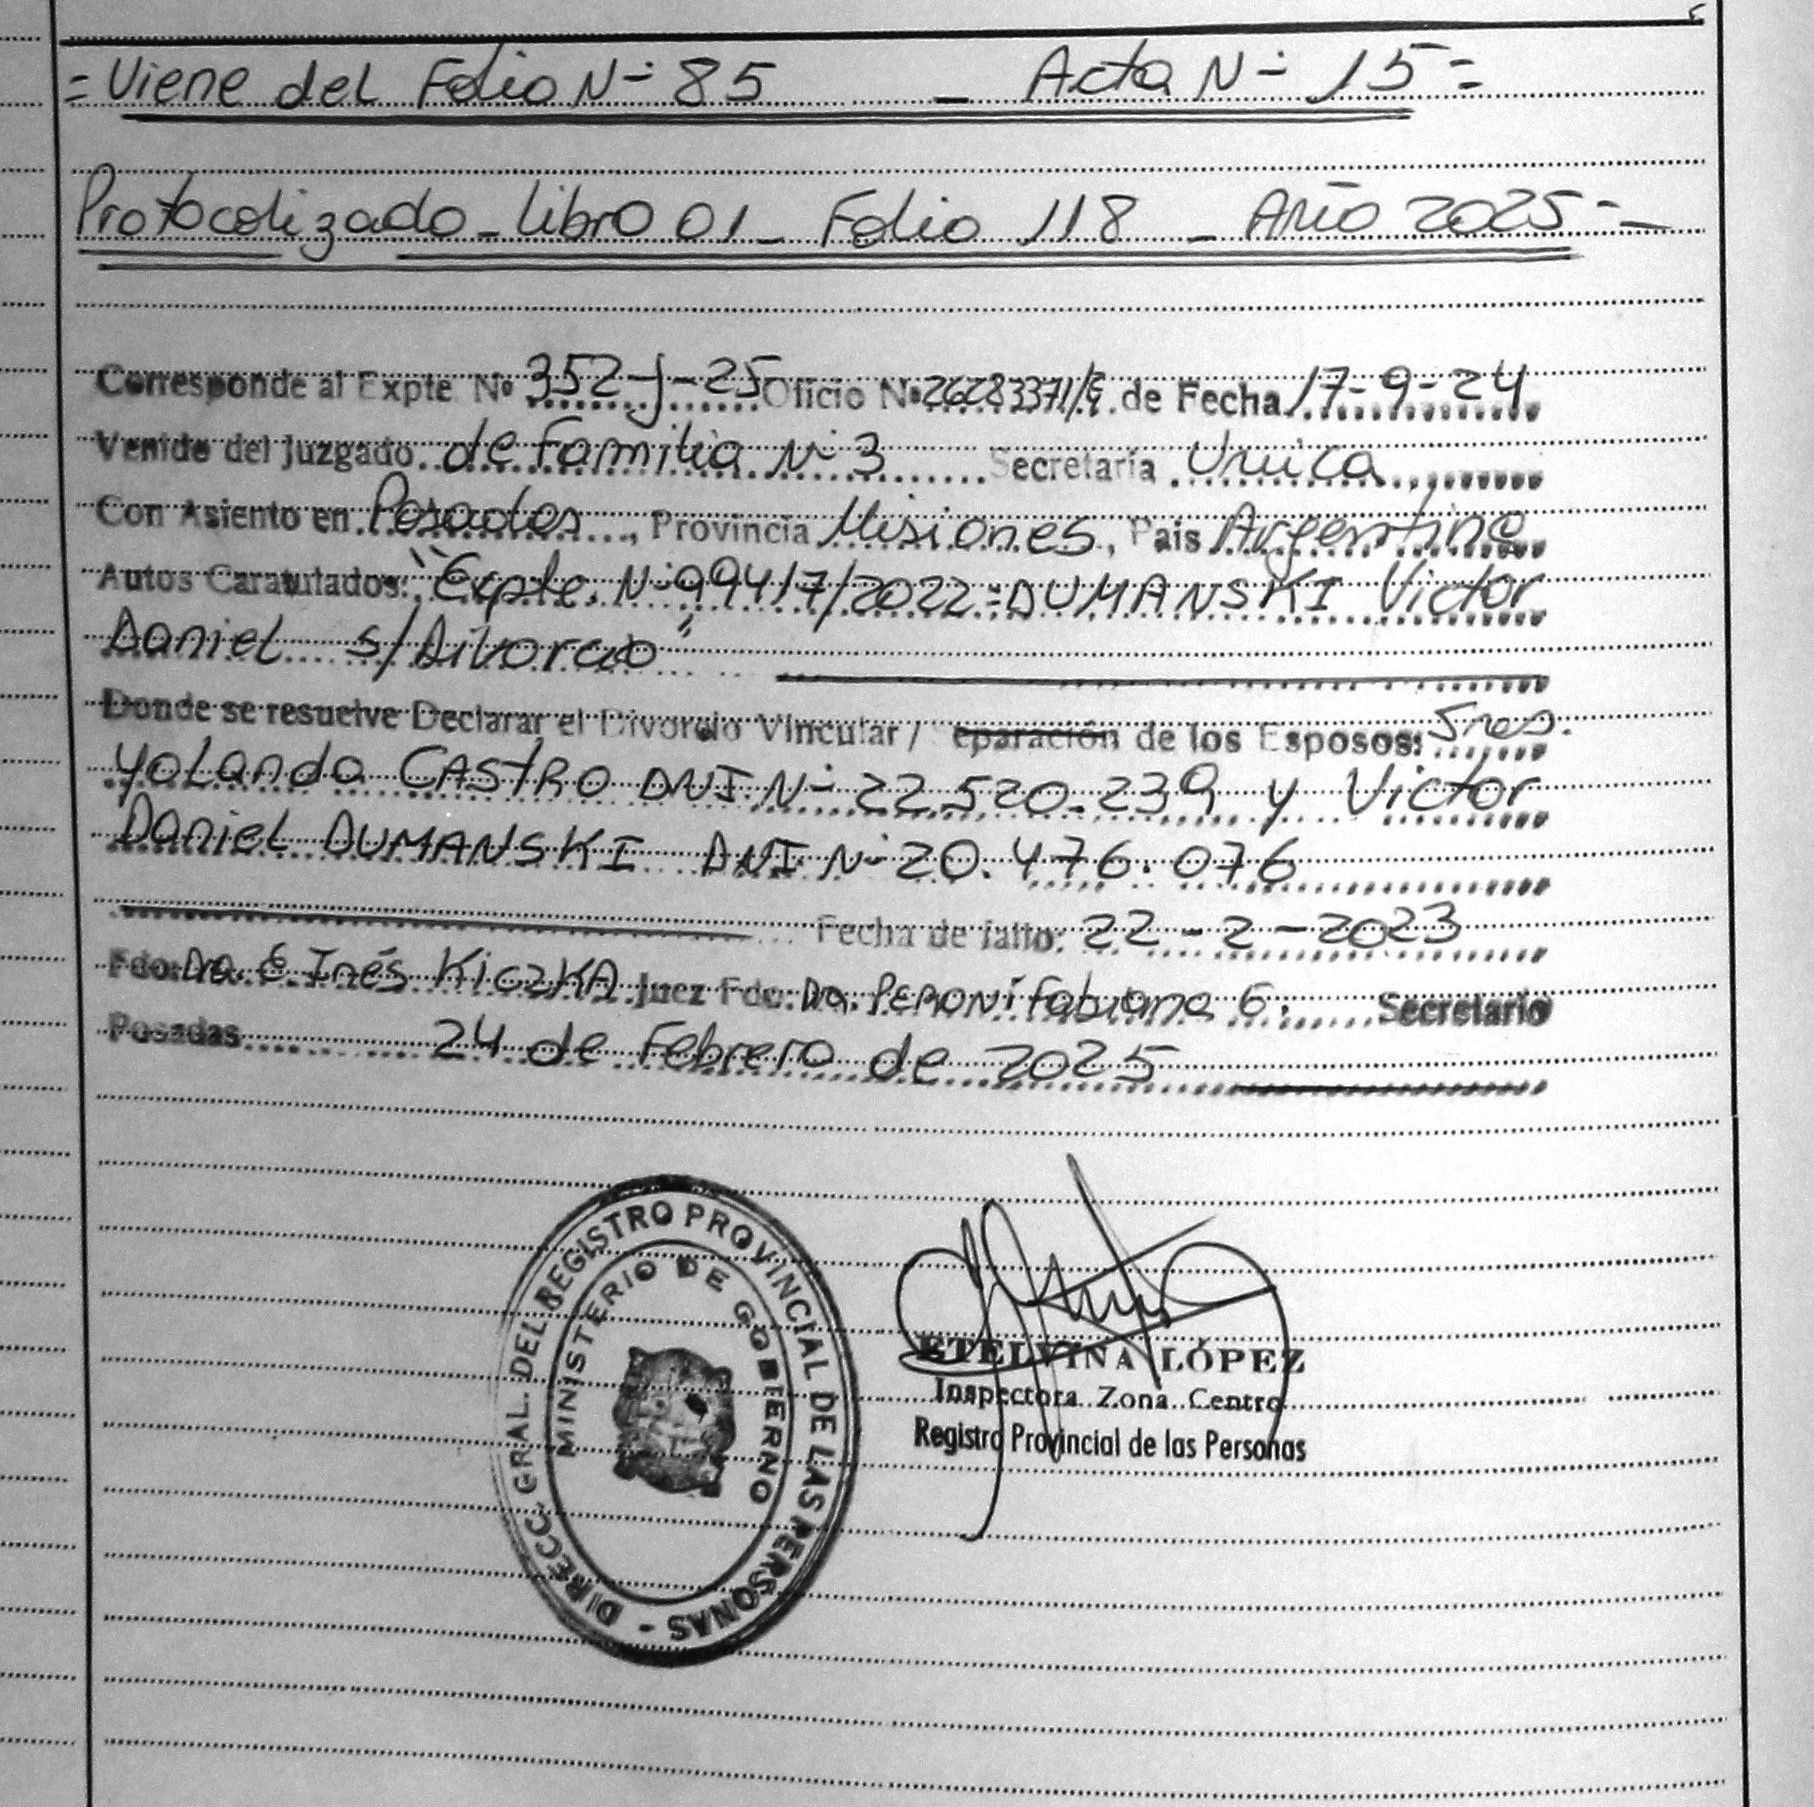 = Viene del Folio N- 85 - Acta N- 15 =
Protocolizado - Libro 01 - Folio 118 - Año 2025 -
Corresponde al Expte. Nº 352-J-25 Oficio Nº 26283371/ de Fecha 17-9-24
Venido del Juzgado de Familia N- 3 Secretaría Unica
Con Asiento en Posadas, Provincia Misiones, Pais Argentina
Autos Caratulados: "Expte. N- 99417/2022 = DUMANSKI Victor
Daniel s/Divorcio"
Donde se resuelve Declarar el Divorcio Vincular / Separación de los Esposos: Sres.
Yolanda CASTRO DNI N- 22.520.239 y Victor
Daniel DUMANSKI DNI N- 20.476.076
Fecha de fallo: 22-2-2023
Fdo: Dra. E Inés KICZKA Juez Fdo: Dra. PERONI Fabiana G. Secretario
Posadas 24 de Febrero de 2025
DIRECC. GRAL. DEL REGISTRO PROVINCIAL DE LAS PERSONAS -
MINISTERIO DE GOBIERNO
ETELVINA LÓPEZ
Inspectora Zona Centro
Registro Provincial de las Personas